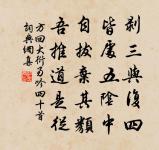 剝三與復四
皆處五陰中
自拔棄其類
吾惟道是從
方回大衍易吟四十首
詞典網集